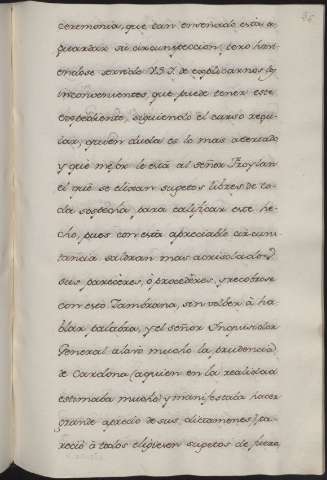 ceremonia, que tan enseñado està à
guardar su circunspeccion; pero havi-
endose servido V.S.I. de explicarnos los
inconvenientes, que puede tener este
expediente, siguiendo el curso regu-
lar, quien duda es lo mas acertado
y que mejor le està al señor Froylan
el que se elixan sugetos libres de to-
da sospecha, para calificar este he-
cho, pues con esta apreciable circuns-
tancia saldran mas acrisolados
sus pareceres, ò procederes, y recobrose
con esto Zambrana, sin volber à ha-
blar palabra, y el señor Inquisidor
General alavò mucho la prudencia
de Cardona (a quien en la realidad
estimaba mucho y manifestaba hacer
grande aprecio de sus dictamenes), pa-
reciò à todos eligiesen sugetos de fuera